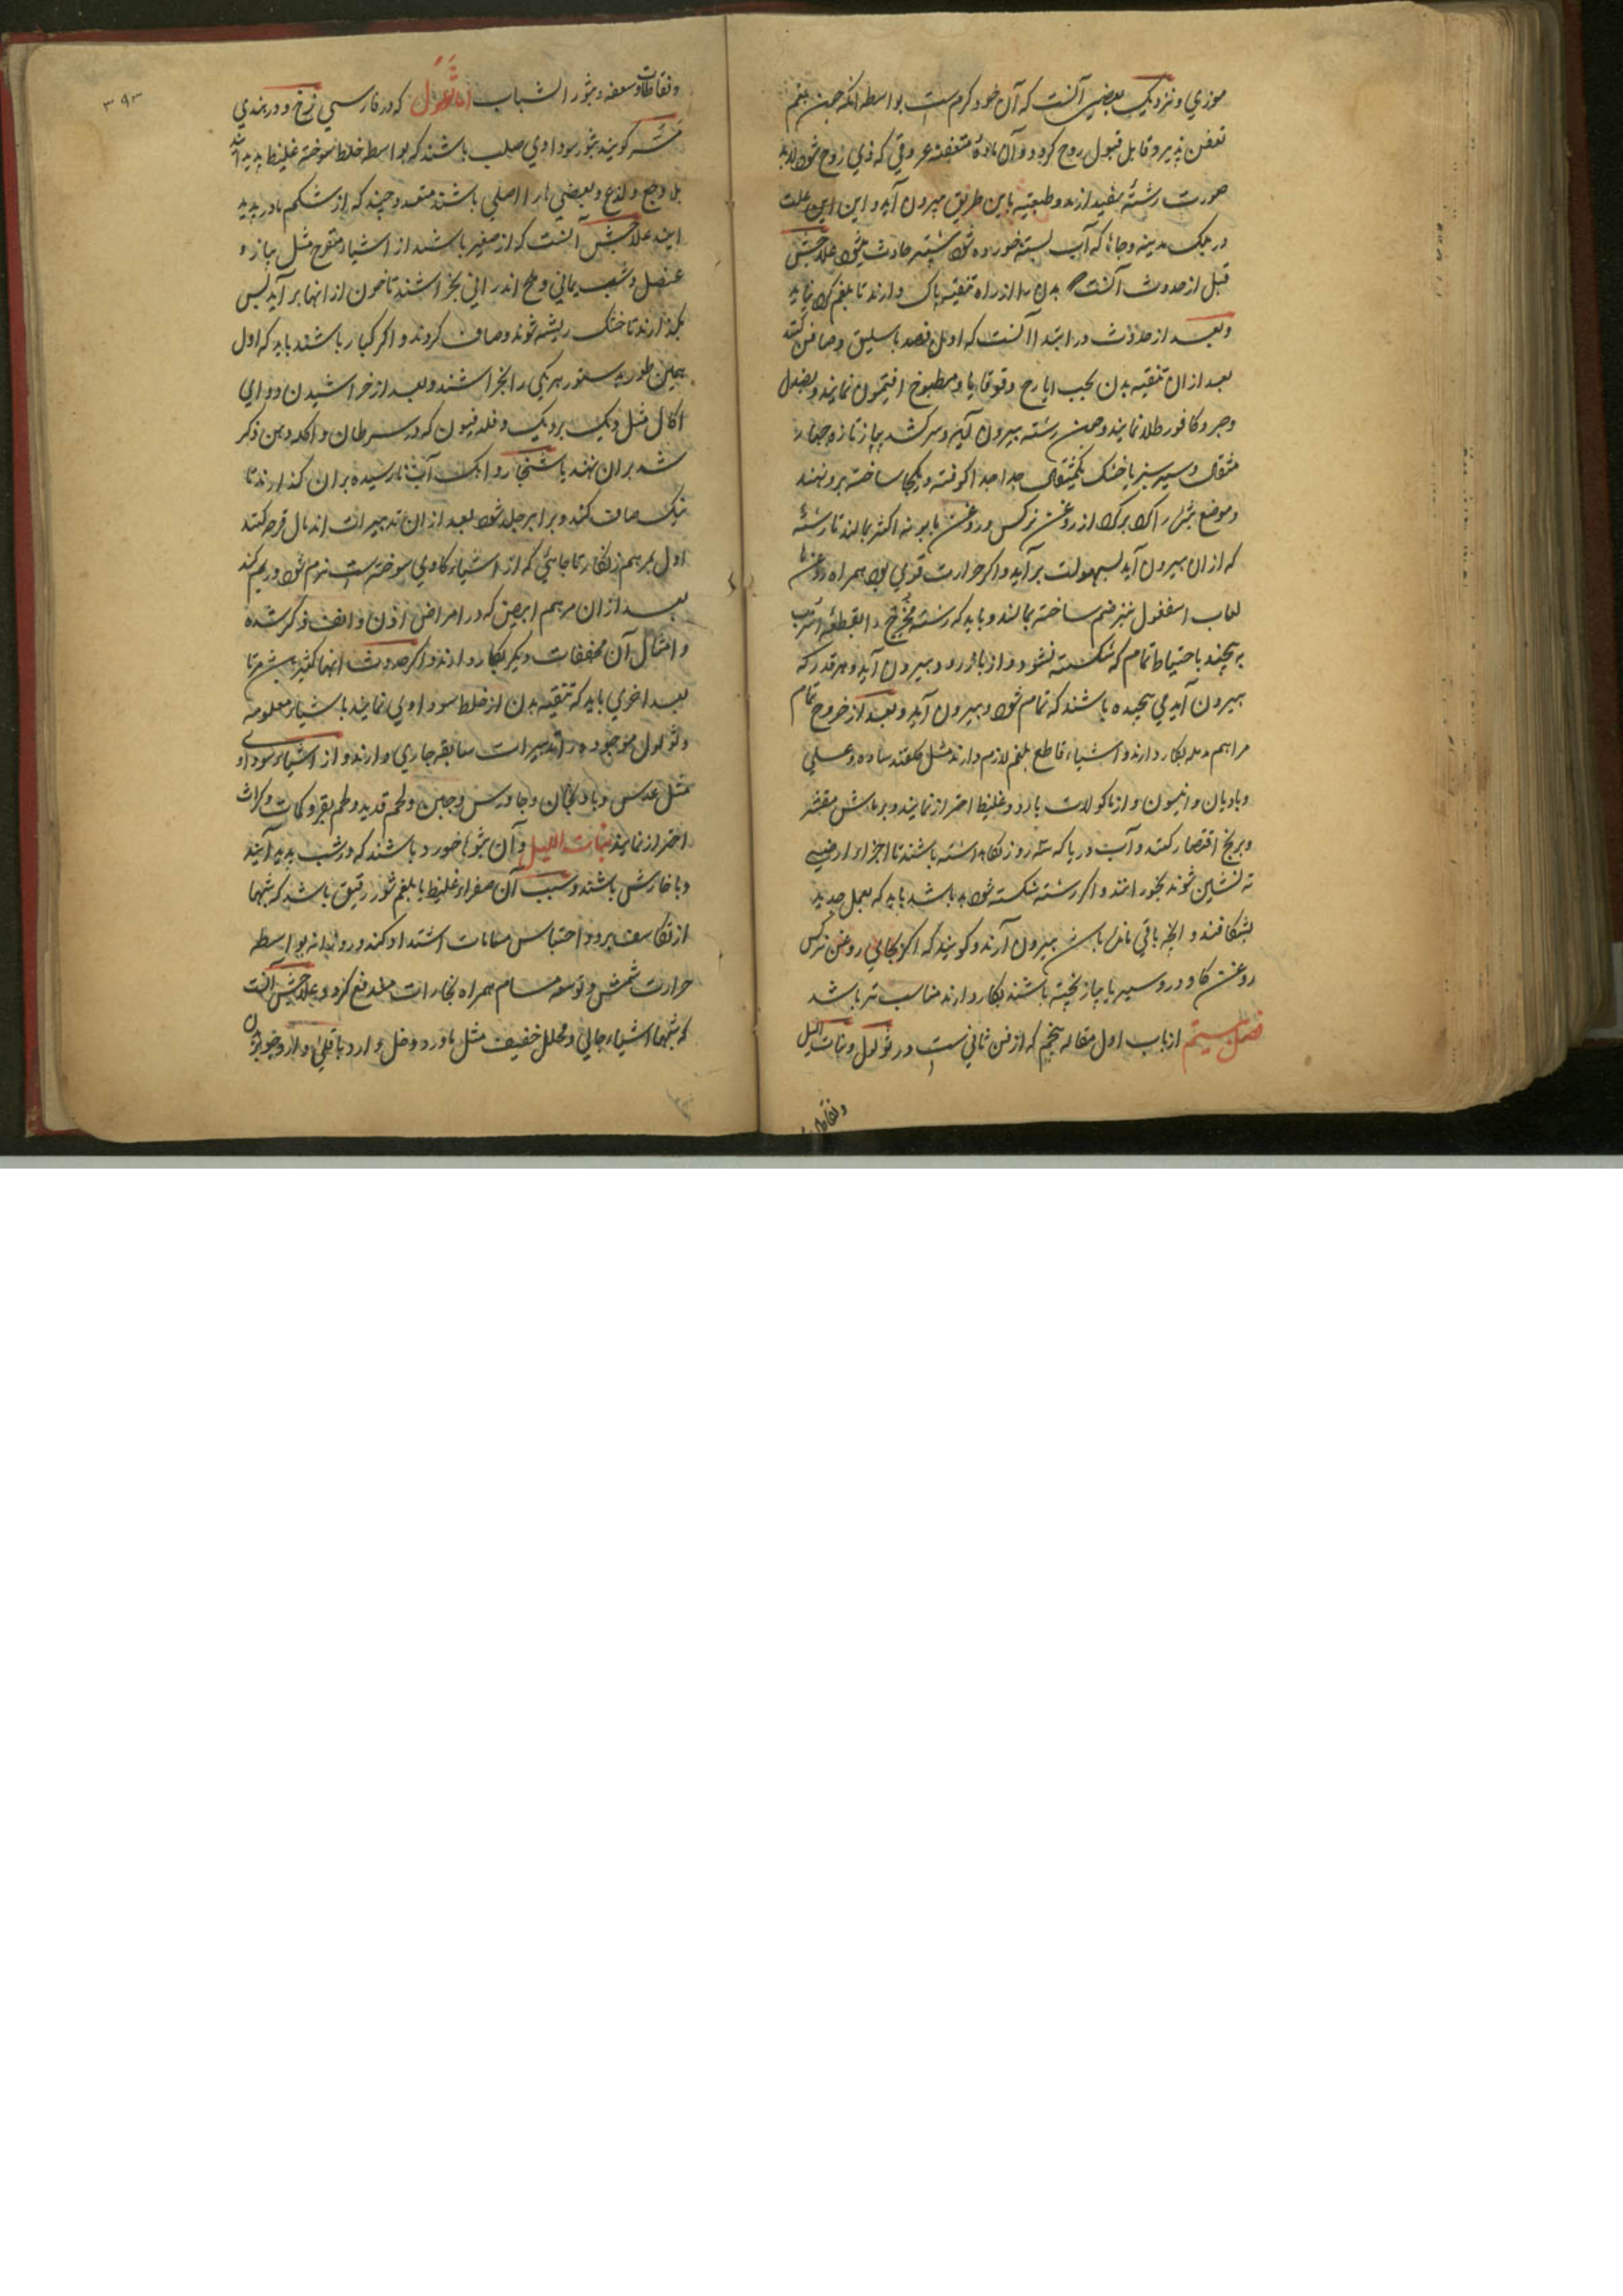 موزي ونزديك بعضي آنست كه آن خود كرم ست بواسطه انكه چون بلغم
تعفن پذيرد قابل قبول روح كردد وآن ماده متعفنه عروقي كه ذي روح شود
صورت رشتهٔ سفيد ازند وطبيعت باين طريق بيرون آيد واين علت
در مدينه وجاها كه آب بسته خورده شود بيشتر حادث ميشود علاجش
قبل از حدوث آنست بدن را از راه تنقيه پاك دارند تا بلغم
وبعد از حدوث در ابتدا آنست كه اول فصد باسليق وصافن كنند
بعد از ان تنقيه بدن بحب ايارج وقوقايا ومطبوخ افتيمون نمايند وبصندل
وكافور طلا نمايند وچون رشته بيرون آيد وسر كشد پياز تازه چهار
مثقال وسير سبز يا خشك يكمثقال جدا جدا كوفته ويكجا ساخته برو نهند
وموضع بثر را از روغن نركس وروغن بابونه اكثر بمالند تا رشتهٔ
كه از ان بيرون آيد بسهولت برآيد واكر حرارت قوي بود همراه روغنها
لعاب اسفغول نيز ضم ساخته بمالند وبايد كه رشته مخرج را بقطعه اسرب
پيچند باحتياط تمام كه شكسته نشود وباز بالا نرود وبيرون آيد وهر قدر كه
بيرون آيد مي پيچيده باشند كه تمام شود وبيرون آيد وبعد از خروج تمام
مراهم مدمله بكار دارند واشياء قاطع بلغم لازم دارند مثل كلقند ساده وعسلي
وباديان وانيسون واز ماكولات بارد وغليظ احتراز نمايند وبر ماش مقشر
وبرنج اقتصار كنند وآب دريا كه سه روز نكاه داشته باشند تا اجزاء ارضي
ته نشين شوند بخورانند واكر رشته شكسته شده باشد بايد كه بعمل حديد
بشكافند وانچه باقي مانده باشد بيرون آرند وكويند كه اكر بجاي روغن نركس
روغن كاو در وسير يا پياز پخته باشند بكار دارند مناسب تر باشد
فصل بيستم از باب اول مقاله پنجم كه از فن ثاني ست در ثولول وبنات الليل
ونفاطات
ونفاطات وسعفه وبثور الشباب اما ثولول كه در فارسي زخ ودر هندي
مسه كويند بثور سوداوي صلب باشند كه بواسطه خلط سوخته غليظ پديد آيند
بلا وجع ولذع وبعضي را اصلي باشند متعدد وچند كه از شكم مادر پديد
آيند علاجش آنست كه از صغير باشد از اشياء مقرح مثل پياز و
عنصل وشب يماني وملح اندراني بخراشند تا خون از انها برآيد پس
بكذارند تا خشك ريشه شوند وصاف كردند واكر كبار باشند بايد كه اول
بهمين طور بدستور هر يكي را بخراشند وبعد از خراشيدن دواي
اكال مثل ديك برديك وفلدفيون كه در سرطان واكله دهن ذكر
شد بران نهند يا شنجار واهك آب نارسيده بران كذارند تا
نيك صاف كند وبرابر جلد شود بعد از ان تدبيرات اندمال قرحه كنند
اول بمرهم زنكار تا جائي كه از اشياء كاوي سوخته ست نرم شود ودرهم كند
بعد از ان مرهم ابيض كه در امراض اذن وانف ذكر شده
وامثال آن مجففات ديكر بكار دارند واكر حدوث انها كثير باشد مرتا
بعد اخري بايد كه تنقيه بدن از خلط سوداوي نمايند باشياء معلومه
وثولول موجوده را تدبيرات سابقه جاري دارند واز اشياء سوداوي
مثل عدس وبادنجان وجاورس وجبن ولحم قديد ولحم بقر وكمات وكراث
احتراز نمايند بنات الليل وآن بثورها خورد باشند كه در شب پديد آيند
وبا خارش باشند وسبب آن صفراء غليظ يا بلغم شور رقيق باشد كه شبها
از تكاثف برود واحتباس مسامات اشتداد كند ودر روز بواسطه
حرارت شمش وتوسعه مسام همراه بخارات مندفع كردد وعلاجش آنست
كه شبها اشياء جالي ومحلل خفيف مثل ماورد وخل وارد باقلي وارد جو بران
٣٩٣